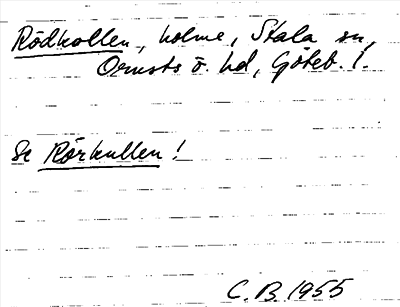 Rödkollen, holme, Stala sn,
Orusts ö. hd, Göteb. l.
Se Rörkullen!
C. B. 1955